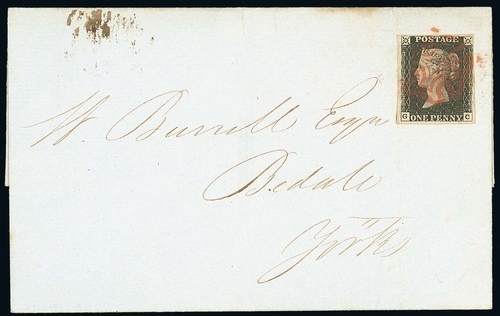 POSTAGE
G C
ONE PENNY
W. Burrill Esqr
Bedale
Yorks